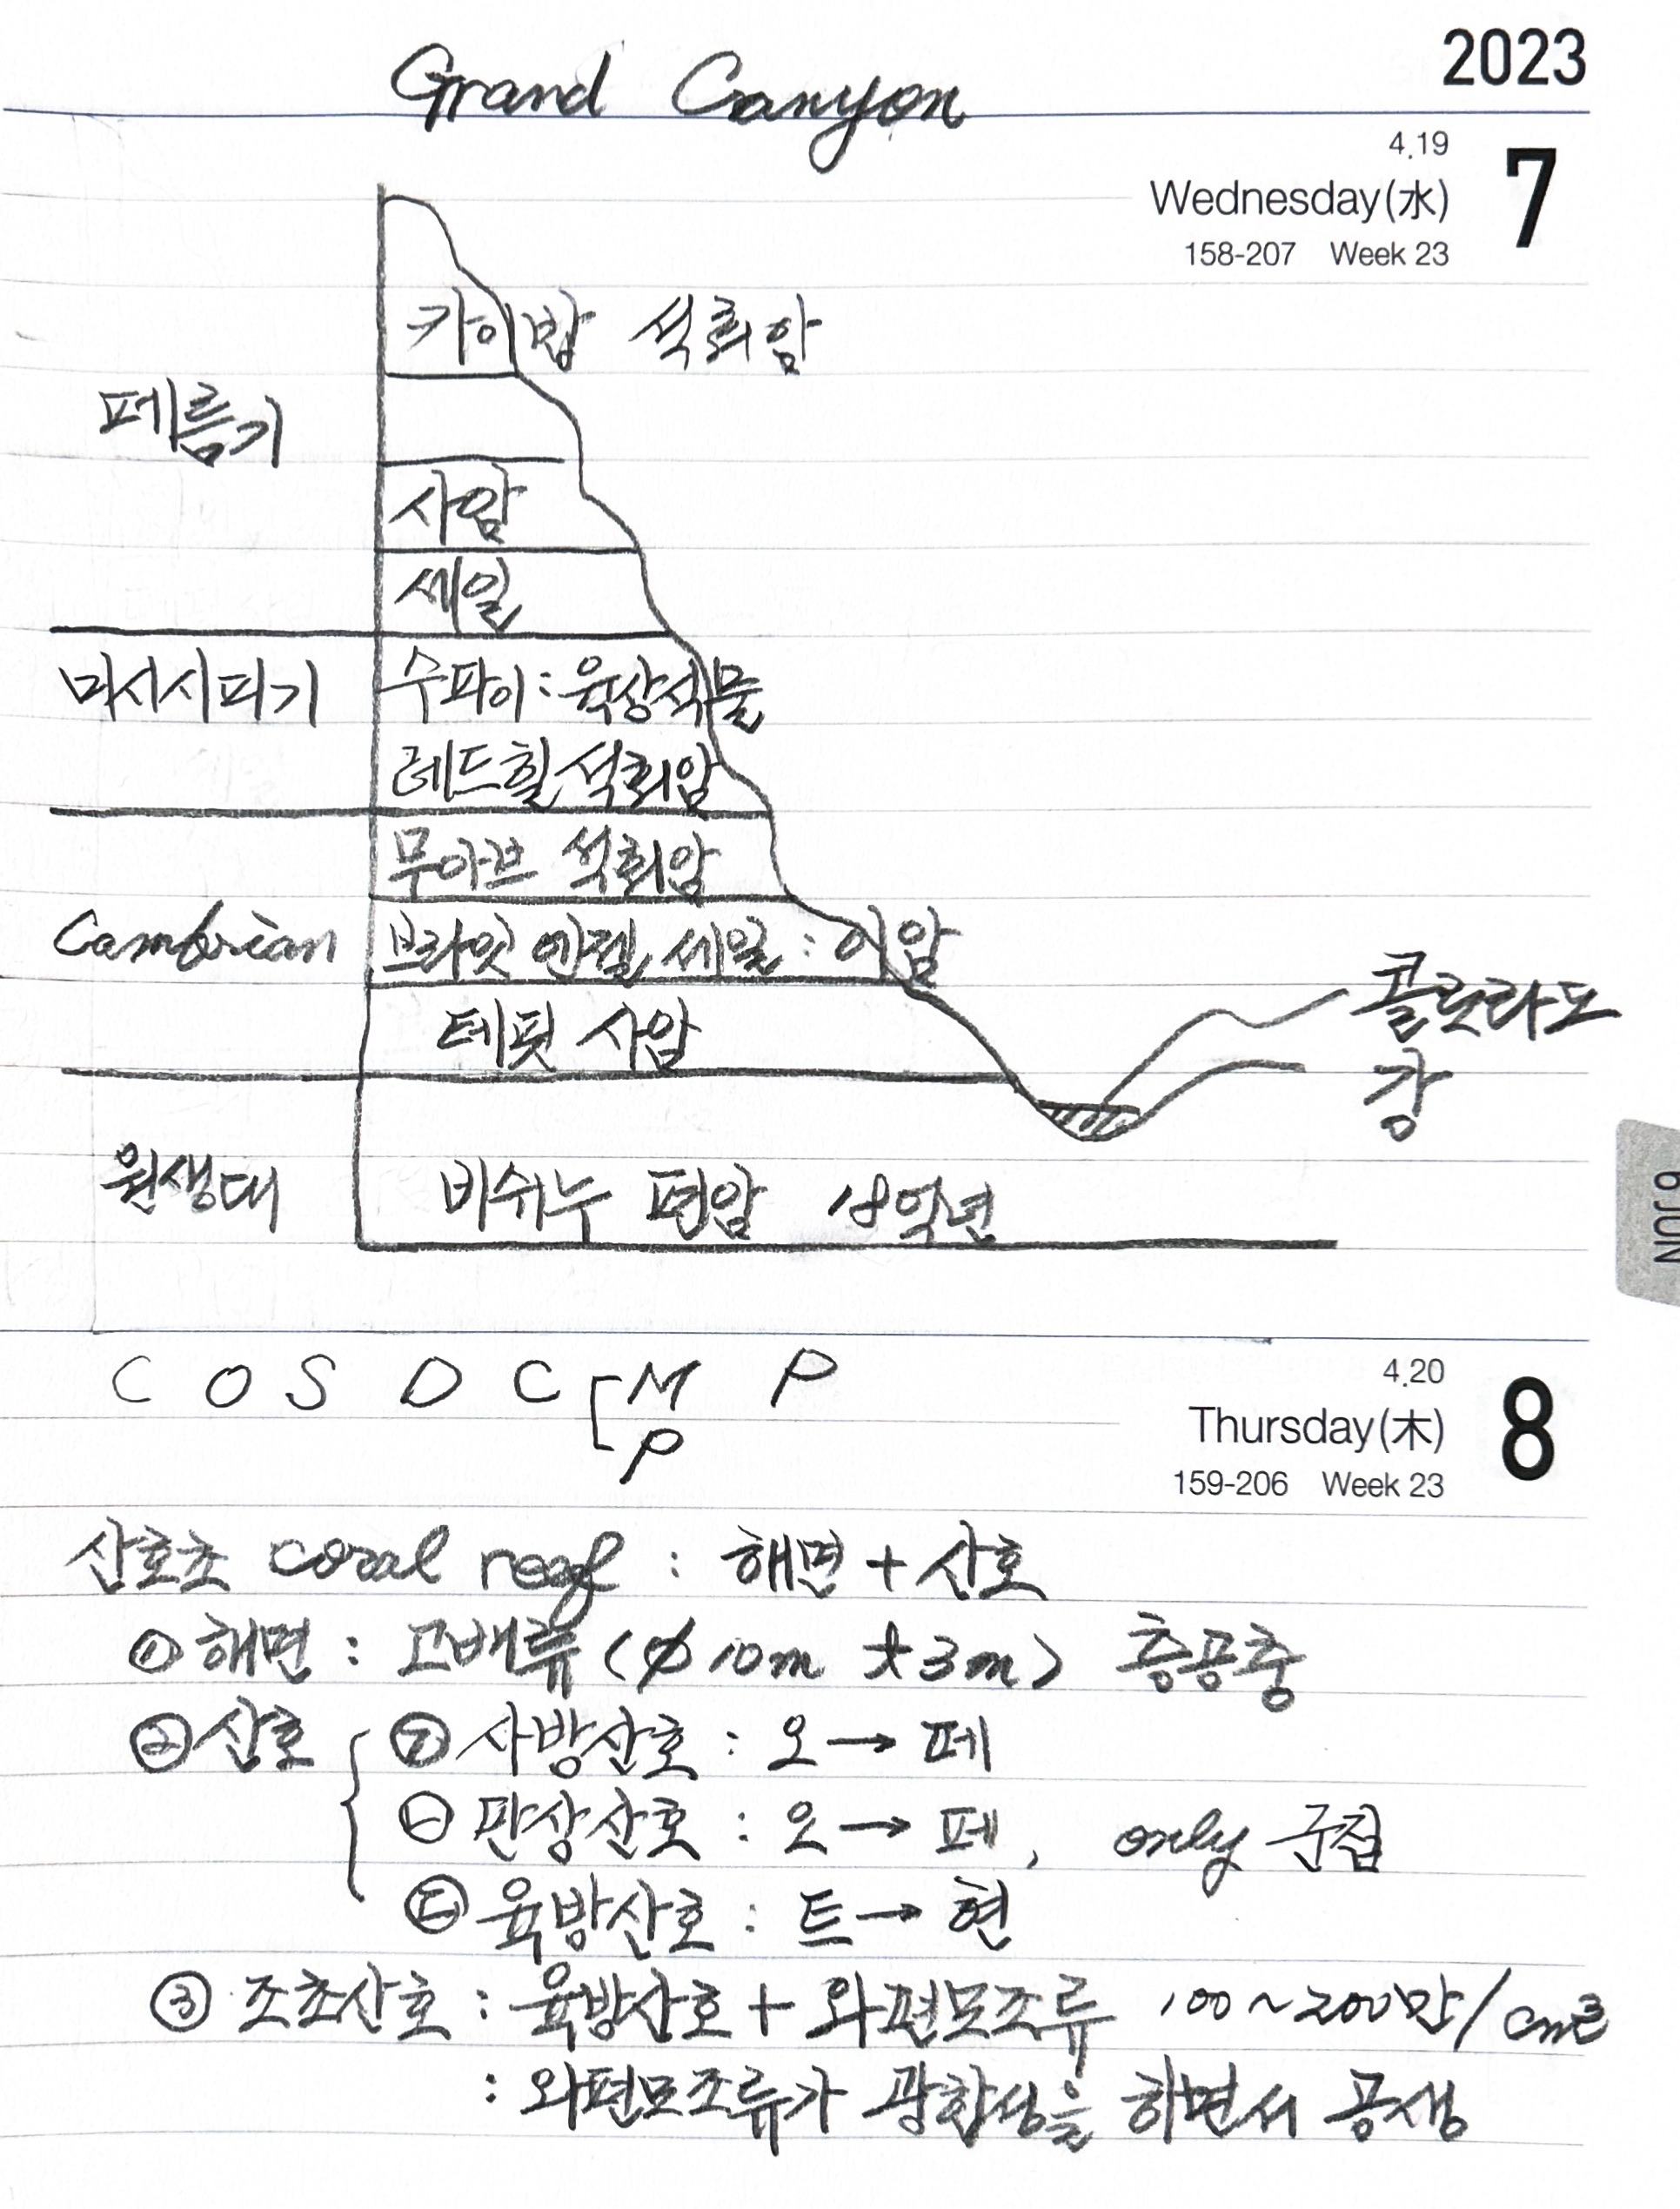 Grand Canyon
2023
4.19
Wednesday(水) 7
158-207 Week 23
카이밥 석회암
페름기
사암
세일
미시시피기 수파이 : 육상식물
레드휠 석회암
무아브 석회암
Cambrian 브라잇 엔젤 세일 : 이암
콜로라도
강
테핏 사암
원생대 비쉬누 편암 18억년
6 JUN
C O S D C [ M P
P
4.20
Thursday(木) 8
159-206 Week 23
산호초 coral reef : 해면 + 산호
① 해면 : 고배류 (ø 10m t3m) 층공충
② 산호 { ㉠ 사방산호 : 오 → 페
㉡ 판상산호 : 오 → 페, only 군집
㉢ 육방산호 : 트 → 현
③ 조초산호 : 육방산호 + 와편모조류 100~200만/cm³
: 와편모조류가 광합성을 하면서 공생